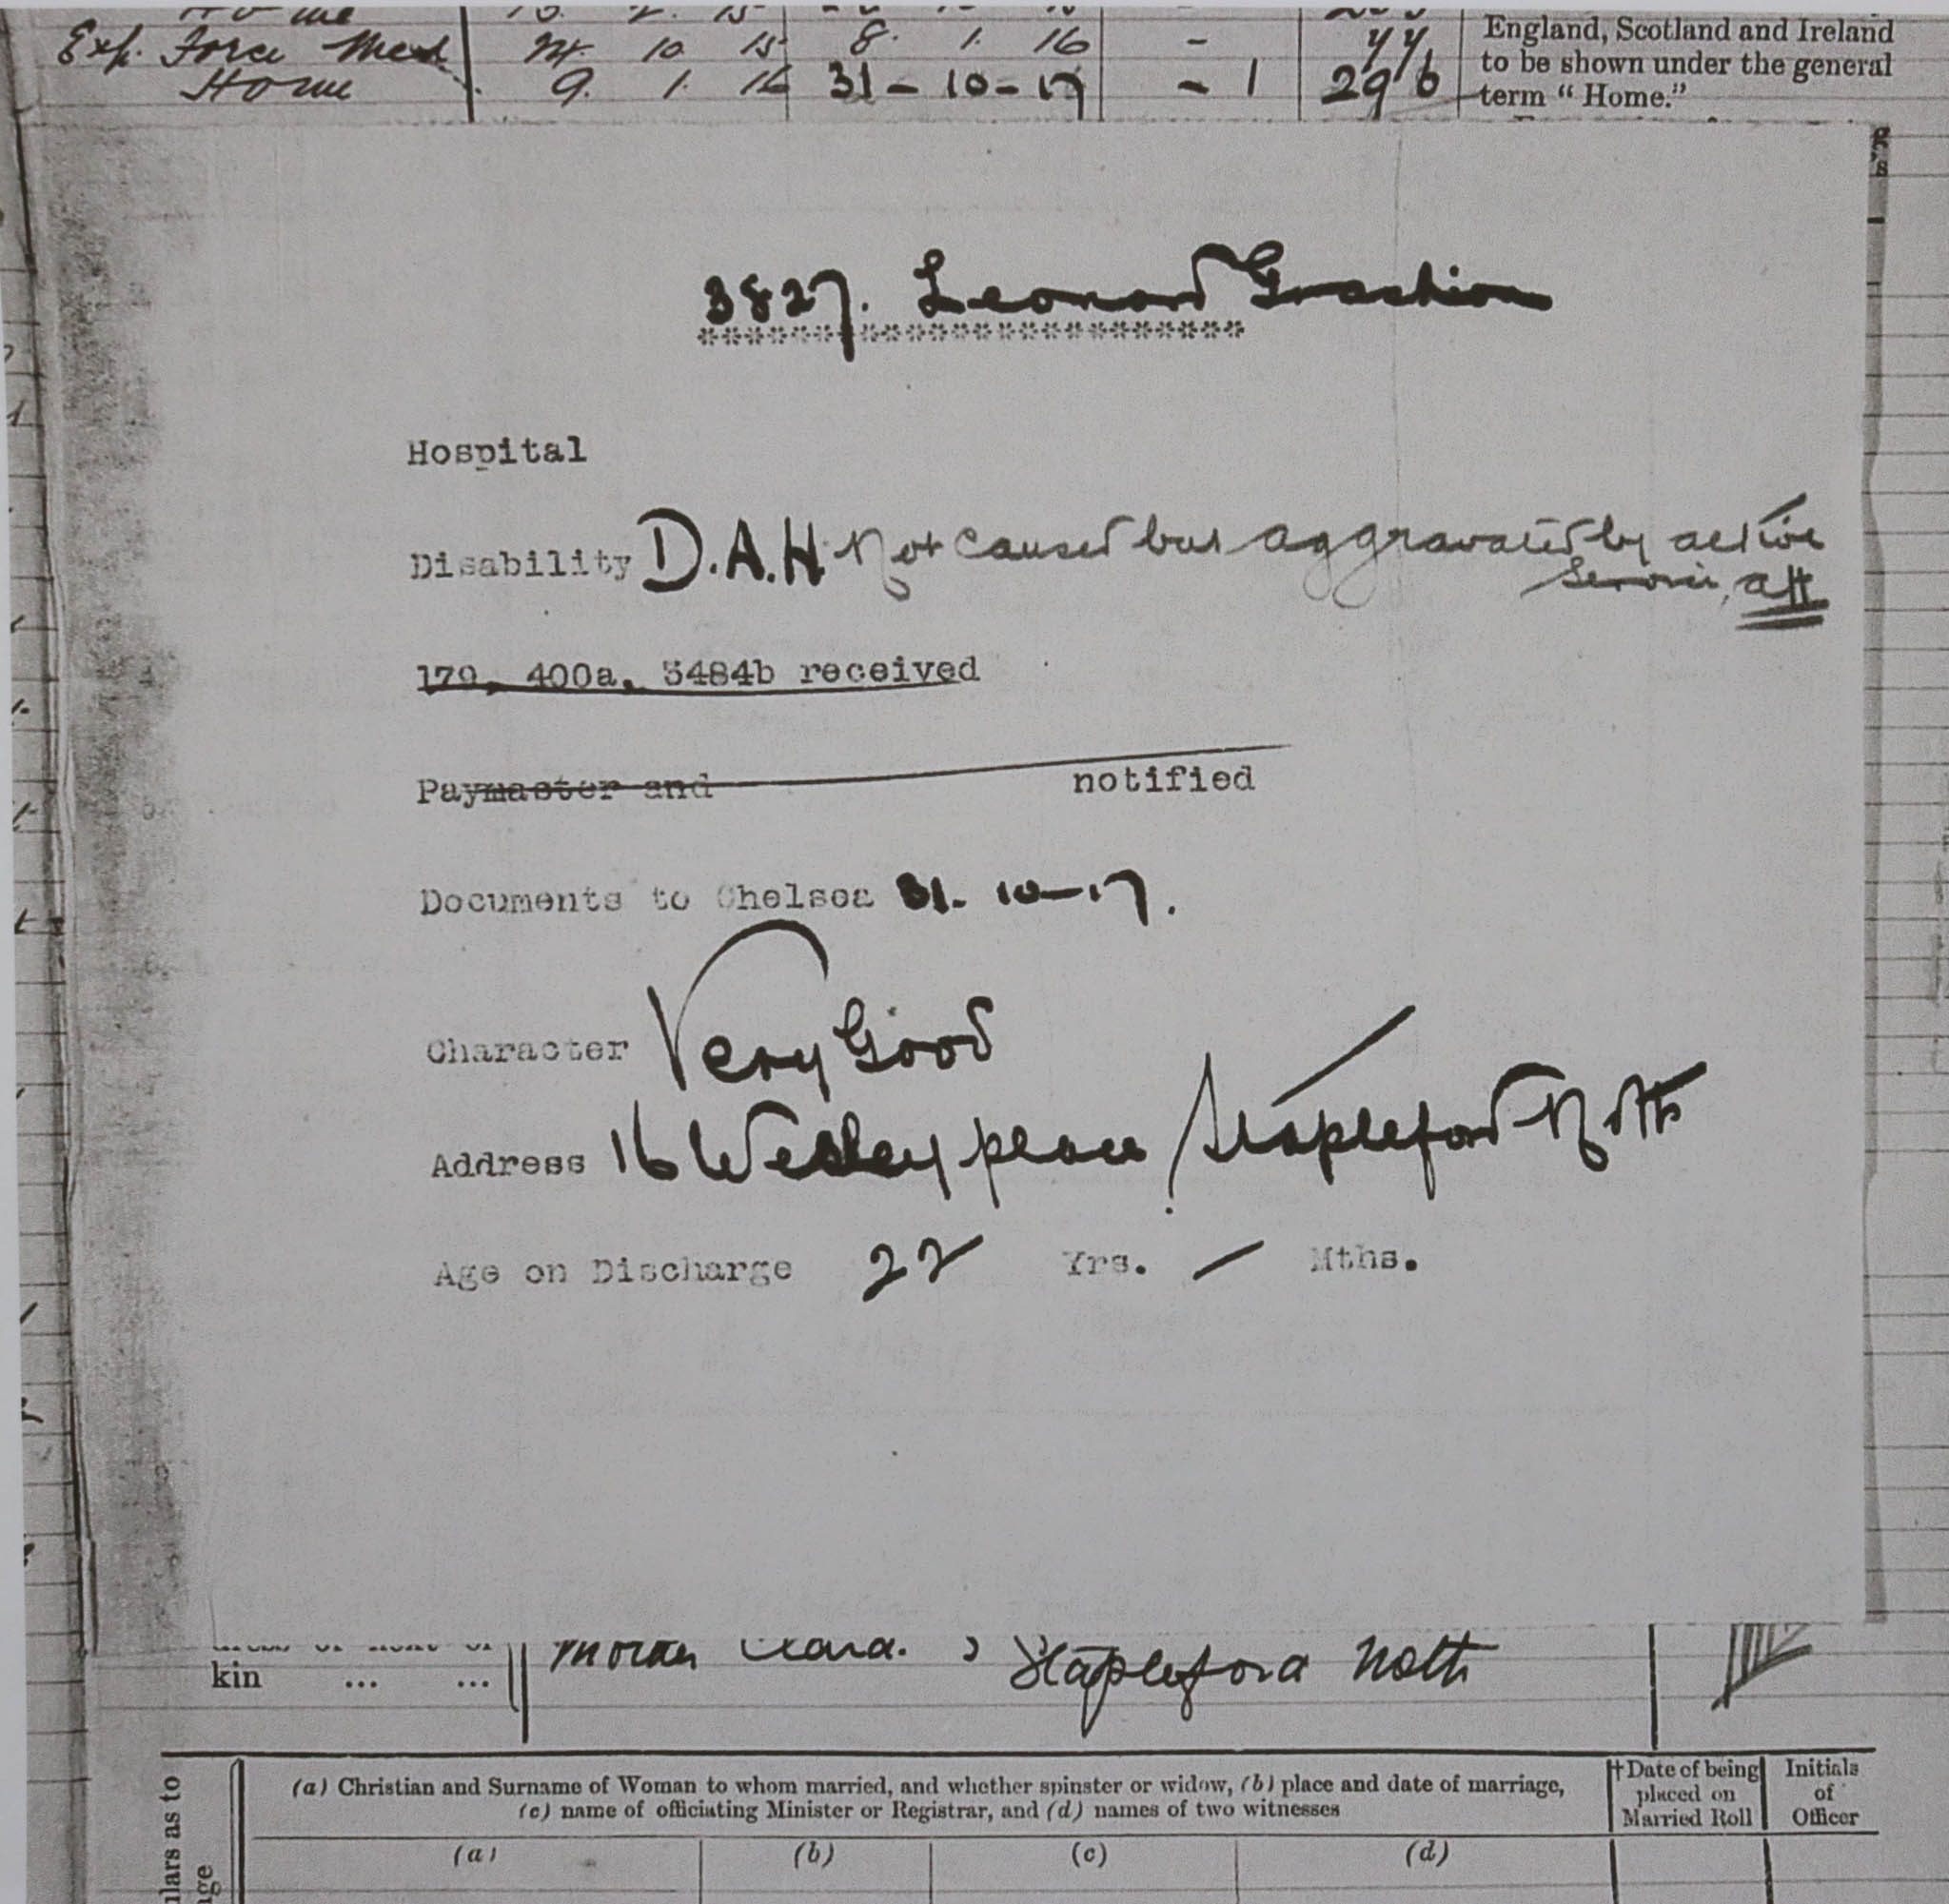 Exp. Force Med 24. 10. 15 8. 1. 16 - 77
Home 9. 1. 16 31-10-17 - 1 296
England, Scotland and Ireland
to be shown under the general
term “ Home.”
3827. Leonard
Hospital
Disability D.A.H. Not caused but aggravated by active
service,
179, 400a, 3484b received
Paymaster and notified
Documents to Chelsea 31. 10-17.
Character Very Good
Address 16 Wesley place Stapleford Notts
Age on Discharge 22 Yrs. — Mths.
kin ... ... Mother Clara. Stapleford Notts
(a) Christian and Surname of Woman to whom married, and whether spinster or widow, (b) place and date of marriage,
(c) name of officiating Minister or Registrar, and (d) names of two witnesses
†Date of being
placed on
Married Roll
Initials
of
Officer
(a) (b) (c) (d)